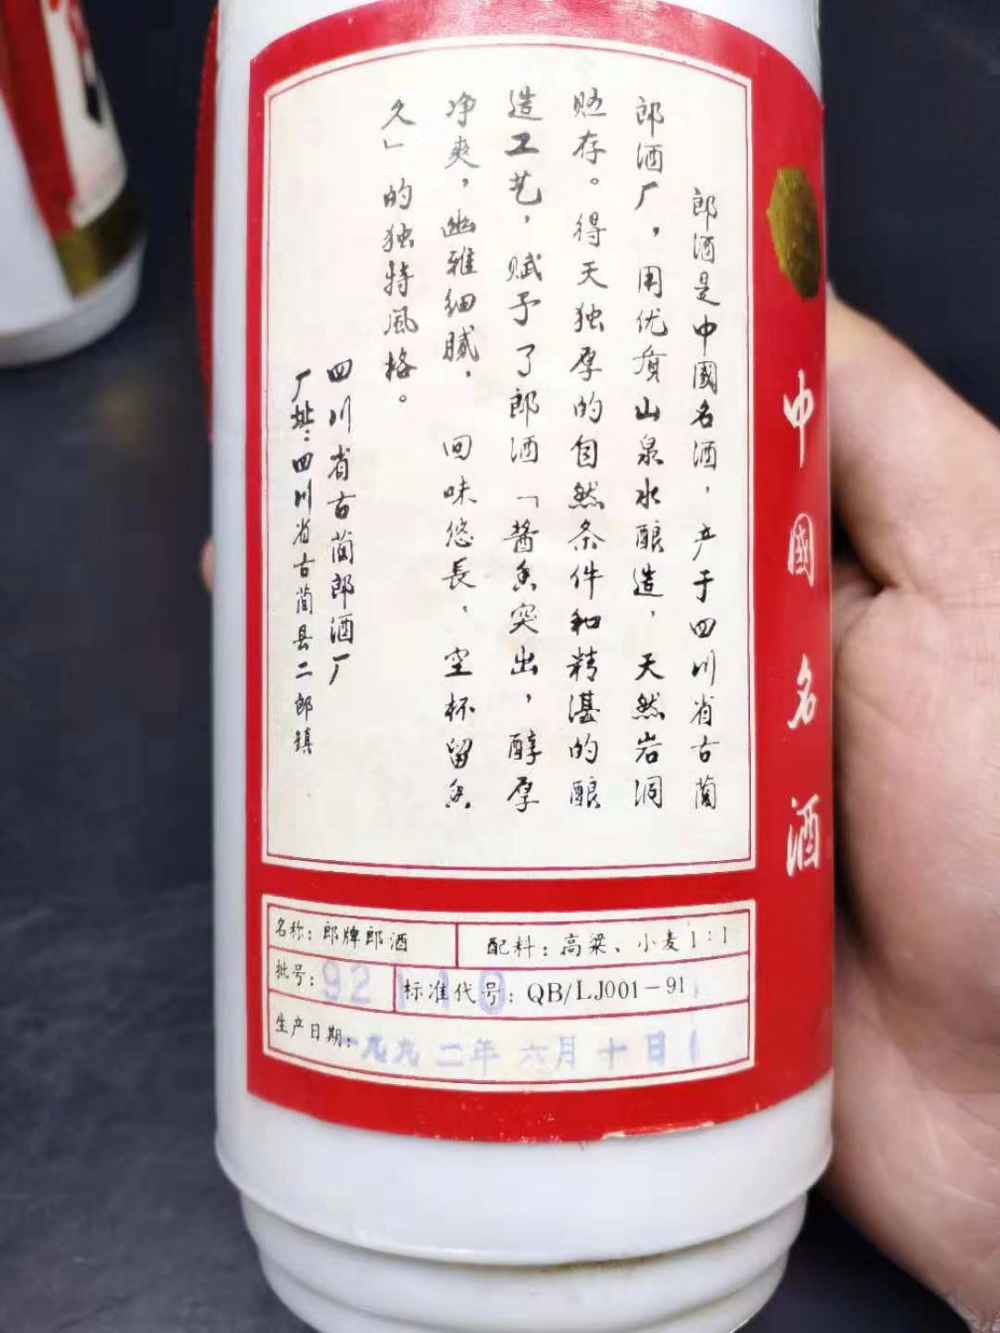 中國名酒
郎酒是中國名酒，产于四川省古蔺
郎酒厂，用优质山泉水酿造，天然岩洞
贮存。得天独厚的自然条件和精湛的酿
造工艺，赋予了郎酒「酱香突出，醇厚
净爽，幽雅细腻，回味悠長，空杯留香
久」的独特風格。
四川省古蔺郎酒厂
厂址：四川省古蔺县二郎镇
名称：郎牌郎酒
配料：高粱、小麦1:1
批号：92
标准代号：QB/LJ001-91
生产日期：一九九二年六月十日